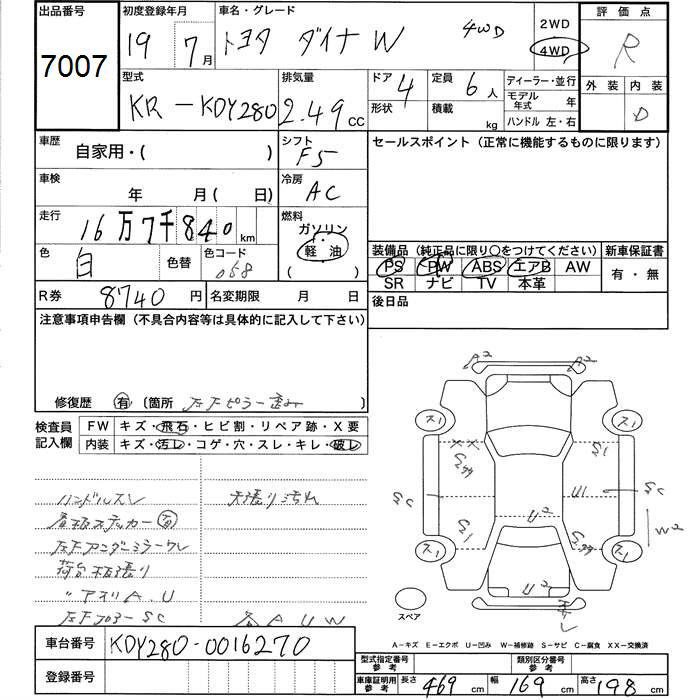 出品番号
7007
初度登録年月
19 7月
車名・グレード
トヨタ ダイナ W 4WD
2WD
4WD
評価点
R
型式
KR-KDY280
排気量
2.49cc
ドア 4
形状
定員 6人
積載 kg
ディーラー・並行
モデル年式 年
ハンドル 左・右
外装 内装
D
車歴
自家用・( )
シフト
F5
セールスポイント(正常に機能するものに限ります)
車検
年 月( 日)
冷房
AC
走行
16万7千840km
燃料
ガソリン
軽油
( )
色
白
色替
色コード
058
装備品(純正品に限り○をつけてください)
新車保証書
PS PW ABS エアB AW
SR ナビ TV 本革
有・無
R券 8740円
名変期限 月 日
後日品
注意事項申告欄(不具合内容等は具体的に記入して下さい)
修復歴 有 (箇所 左Fピラー歪み)
検査員記入欄
FW キズ・飛石・ヒビ割・リペア跡・X要
内装 キズ・汚レ・コゲ・穴・スレ・キレ・破レ
ハンドルスレ
天張り汚れ
ステッカー有
左Fアンダーミラーワレ
荷台板張り
〃アオリA.U
SC
各AUW
A2
A2
ス1
ス1
S1
SC
U1
SC
U2
W2
S1
ス1
ス1
U2
スペア
A-キズ E-エクボ U-凹み W-補修跡 S-サビ C-腐食 XX-交換済
車台番号
KDY280-0016270
登録番号
型式指定番号参考
類別区分番号参考
車庫証明用参考
長さ 469cm
幅 169cm
高さ 198cm